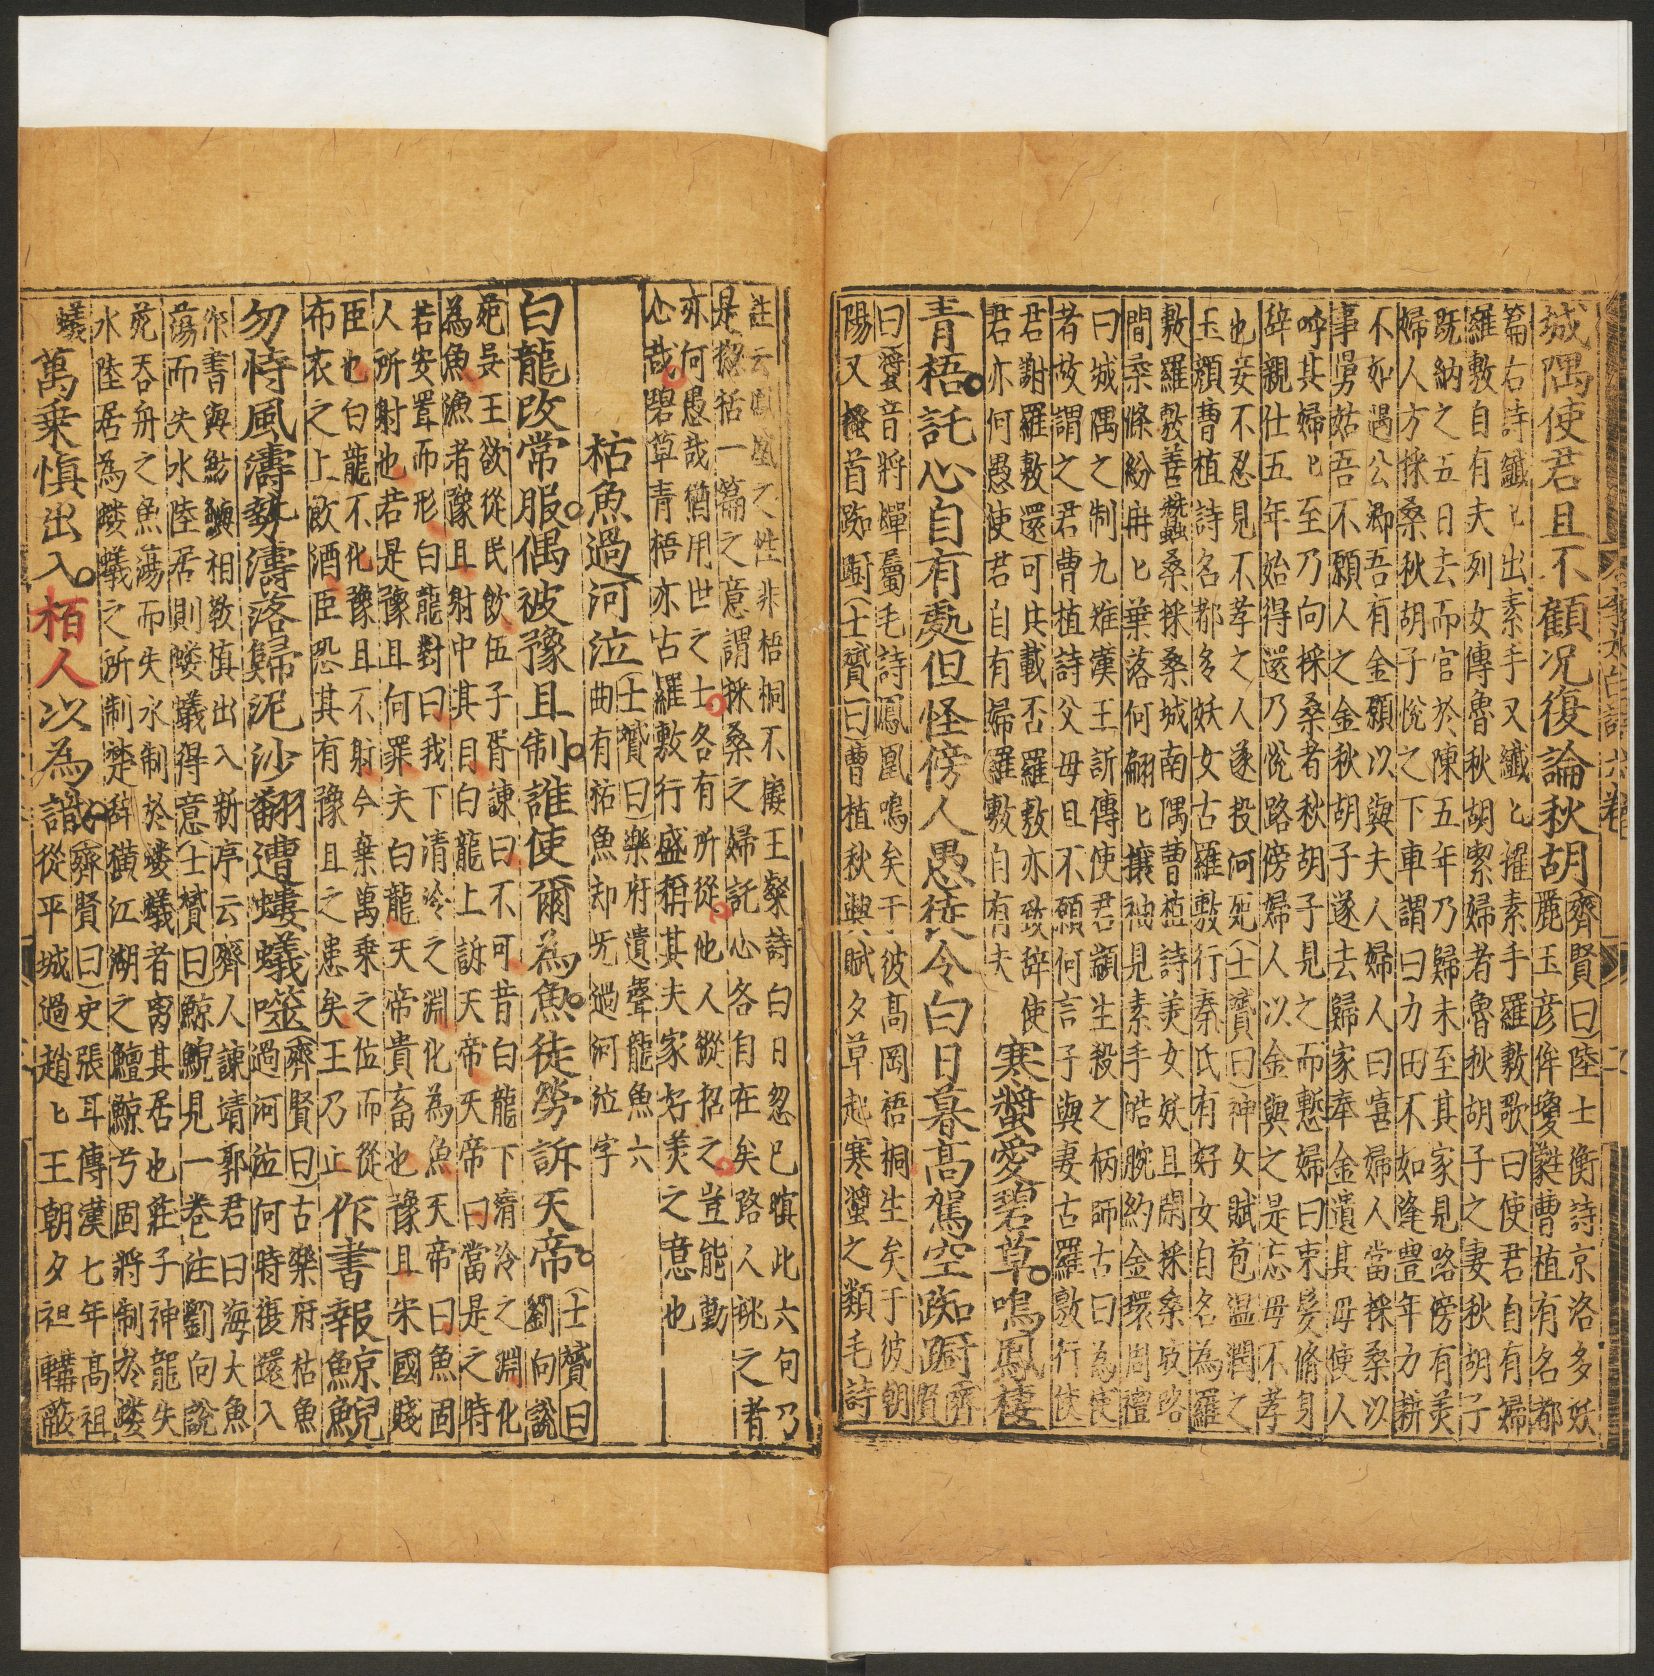 城隅使君且不顧况復論秋胡
齊賢曰陸士衡詩京洛多妖
麗玉彦侔瓊蘂曹植有名都
篇右詩纖匕出素手又纖匕擢素手羅敷歌曰使君自有婦
羅敷自有夫列女傳魯秋胡潔婦者魯秋胡子之妻秋胡子
旣納之五日去而官於陳五年乃歸未至其家見路傍有美
婦人方採桑秋胡子悅之下車謂曰力田不如逢豊年力耕
不如遇公卿吾有金願以與夫人婦人曰嘻婦人當採桑以
事舅姑吾不願人之金秋胡子遂去歸家奉金遺其母使人
呼其婦匕至乃向採桑者秋胡子見之而慙婦曰束髮脩身
辞親仕五年始得還乃悅路傍婦人以金與之是忘母不孝
也妾不忍見不孝之人遂投河死士贇曰神女賦苞温潤之
玉顔曹植詩名都多妖女古羅敷行秦氏有好女自名為羅
敷羅敷善蚕桑採桑城南隅曹植詩美女妖且閑採桑歧路
間桑條紛冉匕葉落何翩匕攘袖見素手皓腕約金環周禮
曰城隅之制九雉漢王訢傳使君顓生殺之柄師古曰為使
者故謂之君曹植詩父母且不願何言子與妻古羅敷行使
君謝羅敷還可共載否羅敷亦致辞使
君亦何愚使君自有婦羅敷自有夫
寒螿愛碧草鳴鳳棲
青梧託心自有處但怪傍人愚徒令白日暮高駕空踟蹰
齊賢
曰螿音將蟬屬毛詩鳳凰鳴矣于彼髙岡梧桐生矣于彼朝
陽又搔首踟蹰士贇曰曹植秋興賦夕草起寒螿之類毛詩
註云鳳凰之性非梧桐不棲王粲詩白日忽已暝此六句乃
是揔括一篇之意謂採桑之婦託心各自在矣路人挑之者
亦何愚哉猶用世之士各有所從他人縱招之豈能動
心哉碧草青梧亦古羅敷行盛稱其夫家好美之意也
枯魚過河泣
士贇曰樂府遺聲龍魚六
曲有枯魚却无過河泣字
白龍改常服偶被豫且制誰使爾為魚徒勞訴天帝
士贇曰
劉向說
苑吴王欲從民飲伍子胥諫曰不可昔白龍下清泠之淵化
為魚漁者豫且射中其目白龍上訴天帝天帝曰當是之時
若安置而形白龍對曰我下清泠之淵化為魚天帝曰魚固
人所射也若是豫且何罪夫白龍天帝貴畜也豫且宋國賤
臣也白龍不化豫且不射今棄萬乗之位而從
布衣之士飲酒臣恐其有豫且之患矣王乃止
作書報鯨鯢
勿恃風濤勢濤落歸泥沙翻遭螻蟻噬
齊賢曰古樂府枯魚
過河泣何時復還入
作書與魴鱮相敎慎出入新序云齊人諫靖郭君曰海大魚
蕩而失水陸居則螻蟻得意士贇曰鯨鯢見一巻注劉向說
苑吞舟之魚蕩而失水制於螻蟻者离其居也莊子神龍失
水陸居為螻蟻之所制楚辞横江湖之鱣鯨兮固將制於螻
蟻
萬乗慎出入柏人以為識
齊賢曰史張耳傳漢七年髙祖
從平城過趙匕王朝夕袒韝蔽